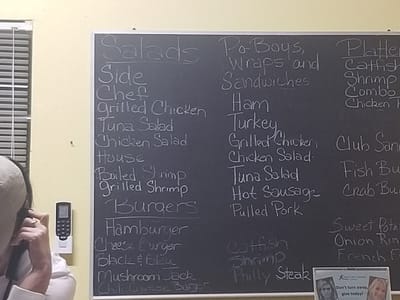 Salads
Side
Chef
Grilled Chicken
Tuna Salad
Chicken Salad
House
Boiled Shrimp
Grilled Shrimp
Burgers
Hamburger
Cheese Burger
Black & Bleu
Mushroom Jack
Chili Cheese Burger
Po-Boys,
Wraps and
Sandwiches
Ham
Turkey
Grilled Chicken
Chicken Salad
Tuna Salad
Hot Sausage
Pulled Pork
Catfish
Shrimp
Philly Steak
Platte
Catfish
Shrimp
Combo
Chicken
Club San
Fish Bu
Crab Bu
Sweet Potat
Onion Rin
French F
Don't turn away,
give today!